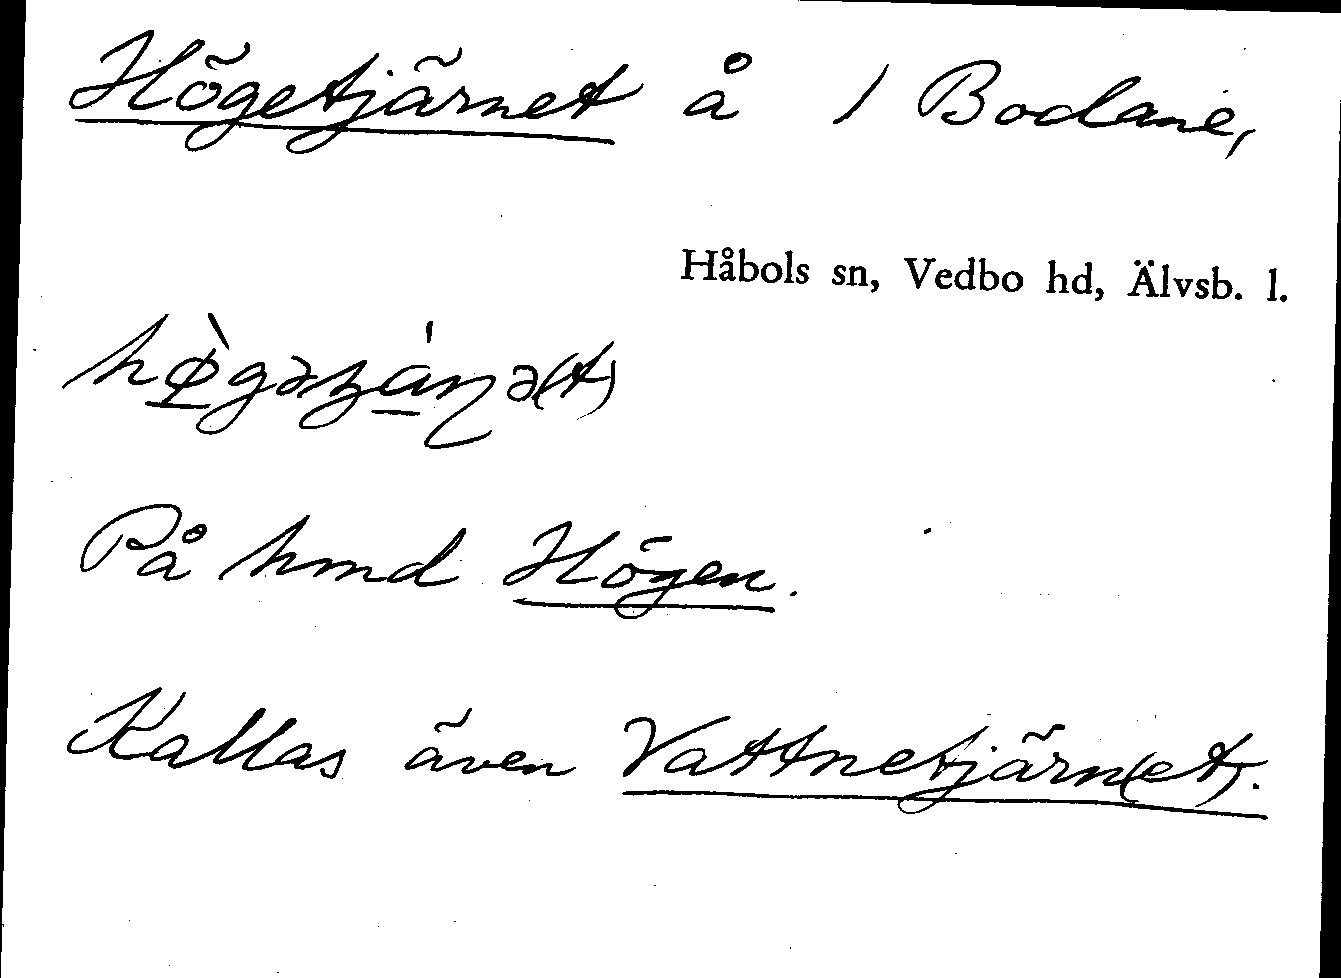 Högetjärnet å 1 Bodane,
Håbols sn, Vedbo hd, Älvsb. l.
På hmd Högen.
Kallas även Vattnetjärn(et).